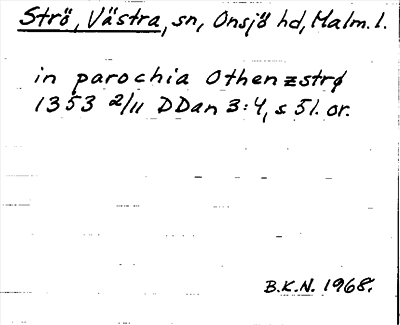 Strö, Västra, sn, Onsjö hd, Malm. l.
in parochia Othenzstrø
1353 2/11 DDan 3:4, s 51. or.
B.K.N. 1968.